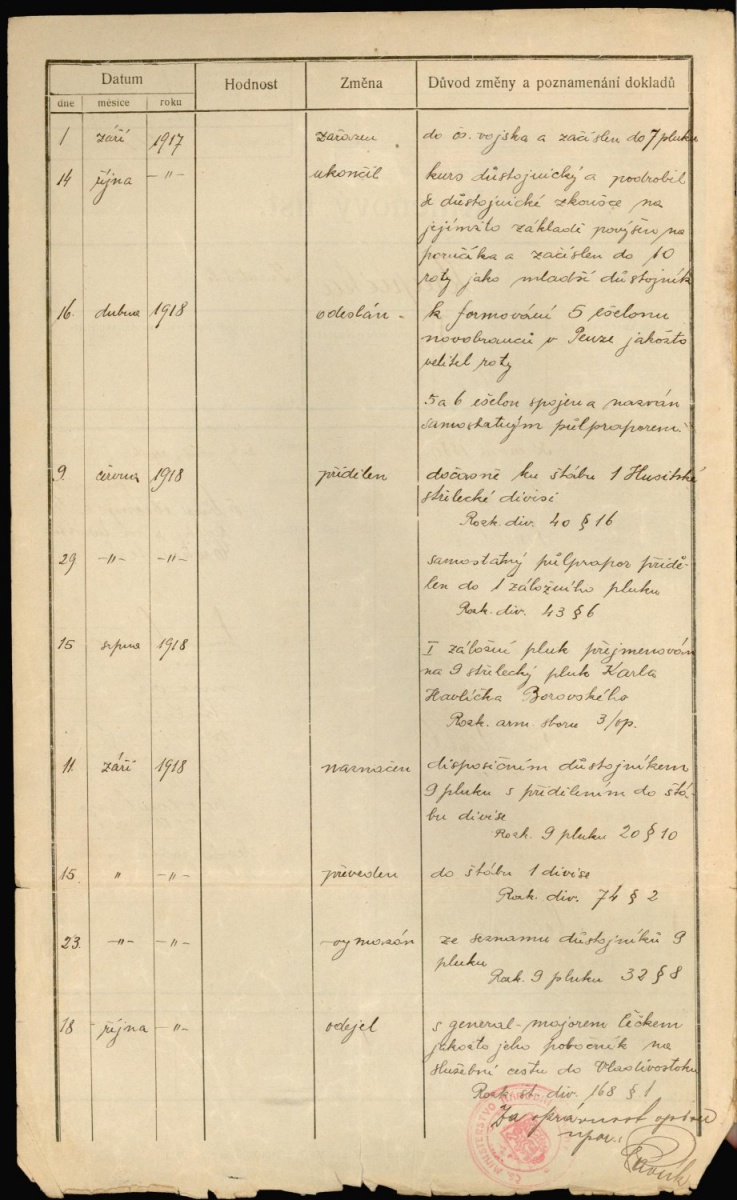 Datum Hodnost Změna Důvod změny a poznamenání dokladů
dne měsíce roku
1 září 1917 zařazen do čs. vojska a začíslen do 7 pluku
14 října -"- ukončil kurs důstojnický a podrobil
se důstojnické zkoušce na
jejímžto základě povýšen na
poručíka a začíslen do 10
roty jako mladší důstojník
16. dubna 1918 odeslán - k formování 5 ešelonu
novobranců v Penze jakožto
velitel roty
5 a 6 ešelon spojen a nazván
samostatným půlpraporem.
9. června 1918 přidělen dočasně ku štábu 1 Husitské
střelecké divisi
Rozk. div. 40 § 16
29 -"- -"- samostatný půlprapor přidě-
len do 1 záložního pluku
Rozk. div. 43 § 6
15 srpna 1918 I záložní pluk přejmenován
na 9 střelecký pluk Karla
Havlíčka Borovského
Rozk. arm. sboru 3/op.
11. září 1918 naznačen disposičním důstojníkem
9 pluku s přidělením do štá-
bu divise
Rozk. 9 pluku 20 § 10
15. " -"- převeden do štábu 1 divise
Rozk. div. 74 § 2
23. -"- -"- vymazán ze seznamu důstojníků 9
pluku
Rozk. 9 pluku 32 § 8
18 října -"- odejel s general-majorem Čečkem
jakožto jeho pobočník na
služební cestu do Vladivostoku
Rozk. st. div. 168 § 1
Za správnost opisu